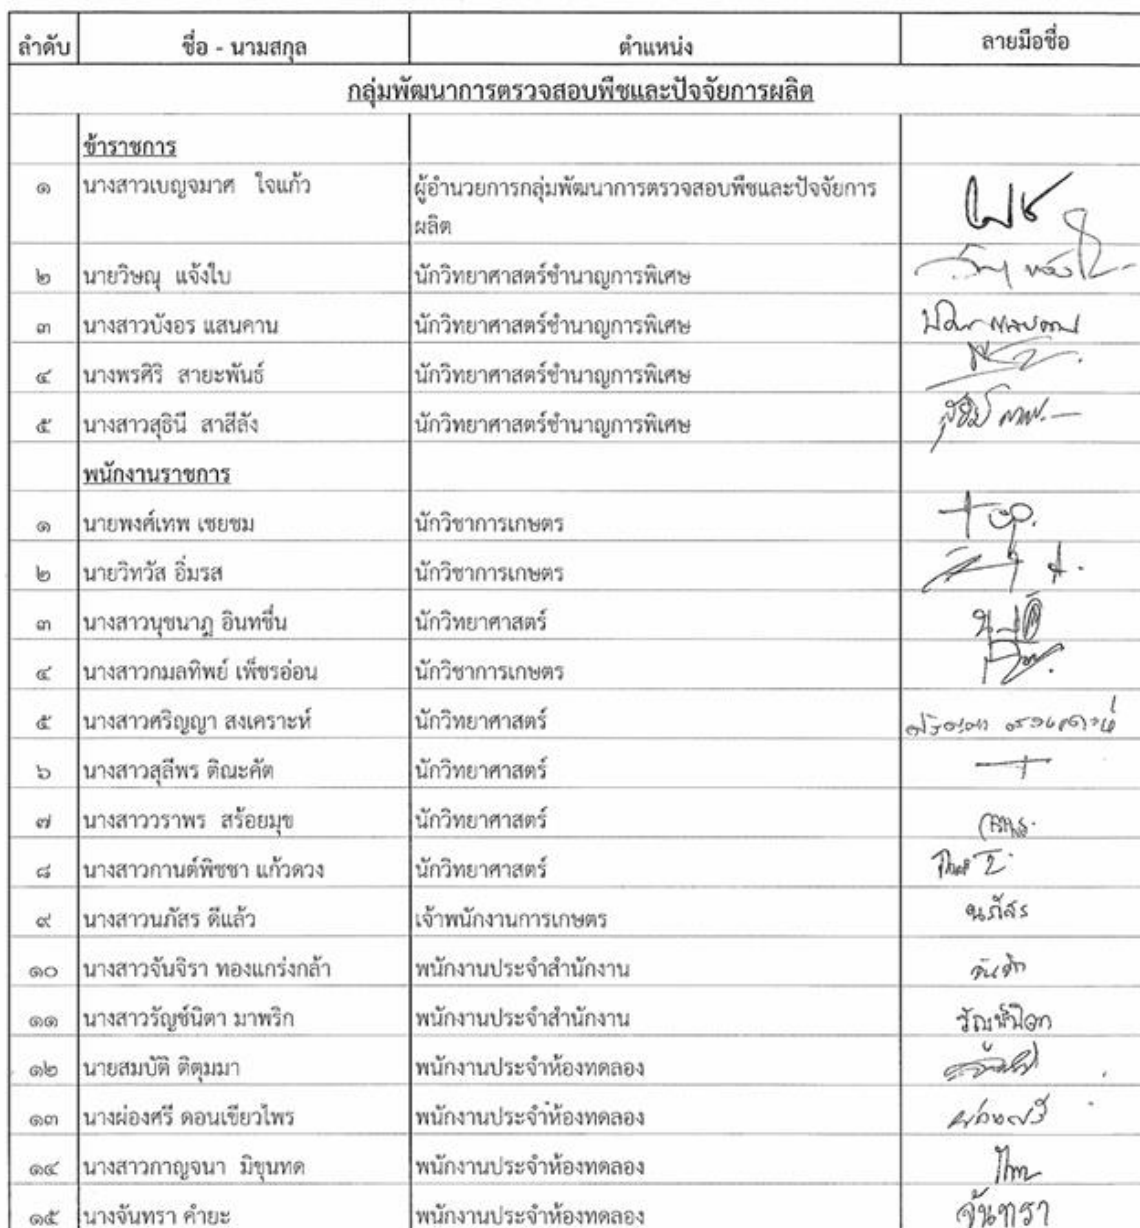 ลำดับ ชื่อ - นามสกุล ตำแหน่ง ลายมือชื่อ
กลุ่มพัฒนาการตรวจสอบพืชและปัจจัยการผลิต
ข้าราชการ
๑ นางสาวเบญจมาศ ใจแก้ว ผู้อำนวยการกลุ่มพัฒนาการตรวจสอบพืชและปัจจัยการ
ผลิต
๒ นายวิษณุ แจ้งใบ นักวิทยาศาสตร์ชำนาญการพิเศษ
๓ นางสาวบังอร แสนคาน นักวิทยาศาสตร์ชำนาญการพิเศษ
๔ นางพรศิริ สายะพันธ์ นักวิทยาศาสตร์ชำนาญการพิเศษ
๕ นางสาวสุธินี สาสีลัง นักวิทยาศาสตร์ชำนาญการพิเศษ
พนักงานราชการ
๑ นายพงศ์เทพ เชยชม นักวิชาการเกษตร
๒ นายวิทวัส อิ่มรส นักวิชาการเกษตร
๓ นางสาวนุชนาฎ อินทชื่น นักวิทยาศาสตร์
๔ นางสาวกมลทิพย์ เพ็ชรอ่อน นักวิชาการเกษตร
๕ นางสาวศริญญา สงเคราะห์ นักวิทยาศาสตร์ ศริญญา สงเคราะห์
๖ นางสาวสุลีพร ติณะคัต นักวิทยาศาสตร์
๗ นางสาววราพร สร้อยมุข นักวิทยาศาสตร์
๘ นางสาวกานต์พิชชา แก้วดวง นักวิทยาศาสตร์
๙ นางสาวนภัสร ดีแล้ว เจ้าพนักงานการเกษตร นภัสร
๑๐ นางสาวจันจิรา ทองแกร่งกล้า พนักงานประจำสำนักงาน
๑๑ นางสาวรัญช์นิตา มาพริก พนักงานประจำสำนักงาน รัญช์นิตา
๑๒ นายสมบัติ ติตุมมา พนักงานประจำห้องทดลอง
๑๓ นางผ่องศรี ดอนเขียวไพร พนักงานประจำห้องทดลอง ผ่องศรี
๑๔ นางสาวกาญจนา มิขุนทด พนักงานประจำห้องทดลอง
๑๕ นางจันทรา คำยะ พนักงานประจำห้องทดลอง จันทรา